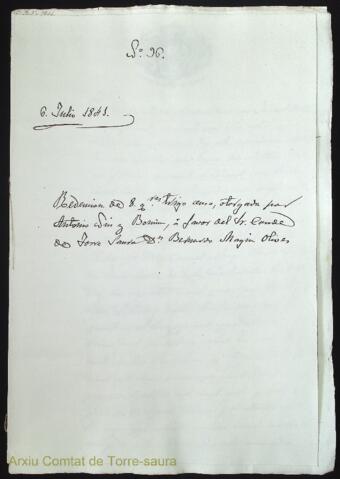 Nº 96.
6. Julio 1841.
Redencion de 8. q.res trigo censo, otorgada por
Antonio y Bonin, á favor del Sr. Conde
de Torre Saura Dn Bernardo Magin Olives
Arxiu Comtat de Torre-saura